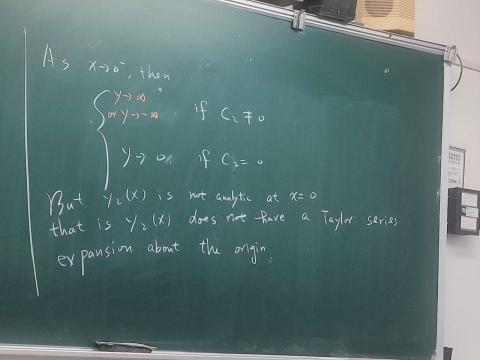 As x→0⁻, then
y→∞
or y→-∞ if C₂≠0
y→0, if C₂=0
But y₂(x) is not analytic at x=0
that is y₂(x) does not have a Taylor series
expansion about the origin.